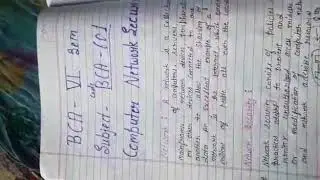 BCA - VI Sem
Subject - BCA - 601
Code
Computer Network Secur
Network : A network is a collection
of computers, servers,
mainframes, network devices,
or other devices connected to one
another to allow the sharing of
data. An excellent example of a
network is the internet, which connects
millions of people all over the world
Network Security :
Network security consists of policies
practices adopted to prevent and
monitor unauthorized access, misuse
modification of computer network
and network accessible resources